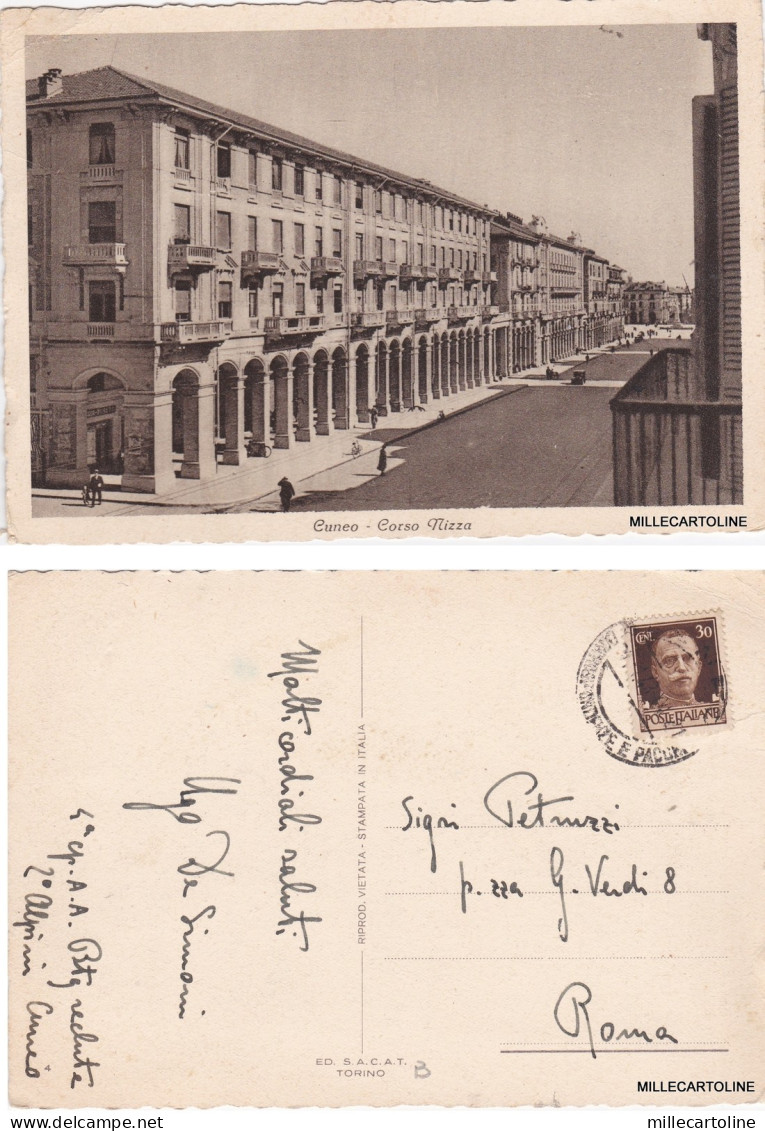 Cuneo - Corso Nizza
MILLECARTOLINE
Molti cordiali saluti
Ugo De Simoni
4ª cp. A.A. Btg reclute
2° Alpini Cuneo
RIPROD. VIETATA - STAMPATA IN ITALIA
CENT. 30
POSTE ITALIANE
E PACCHI
Sigri Petruzzi
p.zza G. Verdi 8
Roma
ED. S.A.C.A.T.
TORINO
B
MILLECARTOLINE
delcampe.net
millecartoline